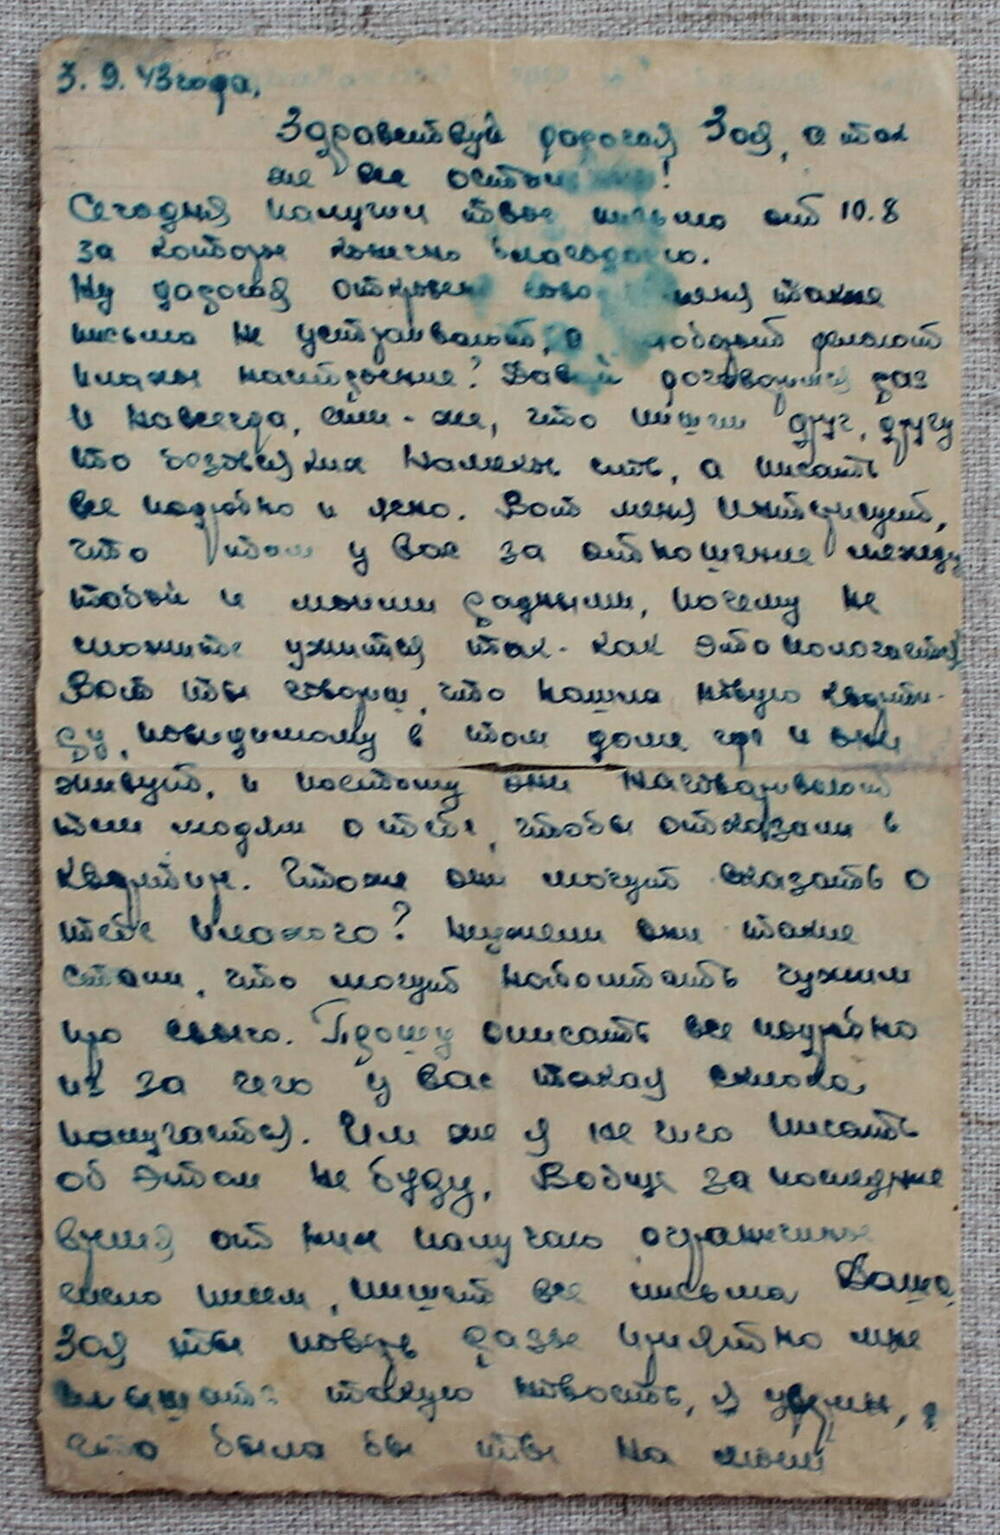 3. 9. 43 года,
Здравствуй дорогая Зоя, а так
же все остальные!
Сегодня получил твое письмо от 10.8
за которое конечно благодарю.
Ну дорогая откровенно меня такие
письма не устраивают, а делают
плохое настроение? Давай договоримся раз
и навсегда, если-же, что пишем друг, другу
то безвсяких намеков сить, а писать
все подробно и ясно. Вот меня интересует,
что там у вас за отношение между
тобой и моими родными, почему не
сможите ужится так-как это пологается
Вот ты говориш, что нашла новую кварти-
ру, повидимому в том доме где и они
живут, и поетому они наговаривают
тем людям о тебе, чтобы отказали в
квартире. Чтоже они могут сказать о
тебе плохого? Неужели они такие
стали, что могут наболтать чужим
про своего. Прошу описать все подробно
из за чего у вас такая склока
получается. Им же я не чего писать
об этом не буду, Вобще за последнее
время от них получаю ограниченое
число писем, пишет все письма Ваша.
Зоя ты поверь разве приятно мне
слышать такую новость, я уверен,
что была бы ты на моем